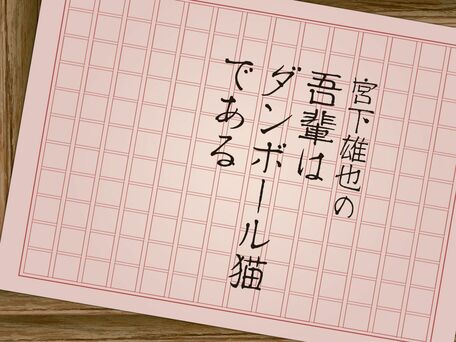 宮下雄也の
吾輩は
ダンボール猫
である